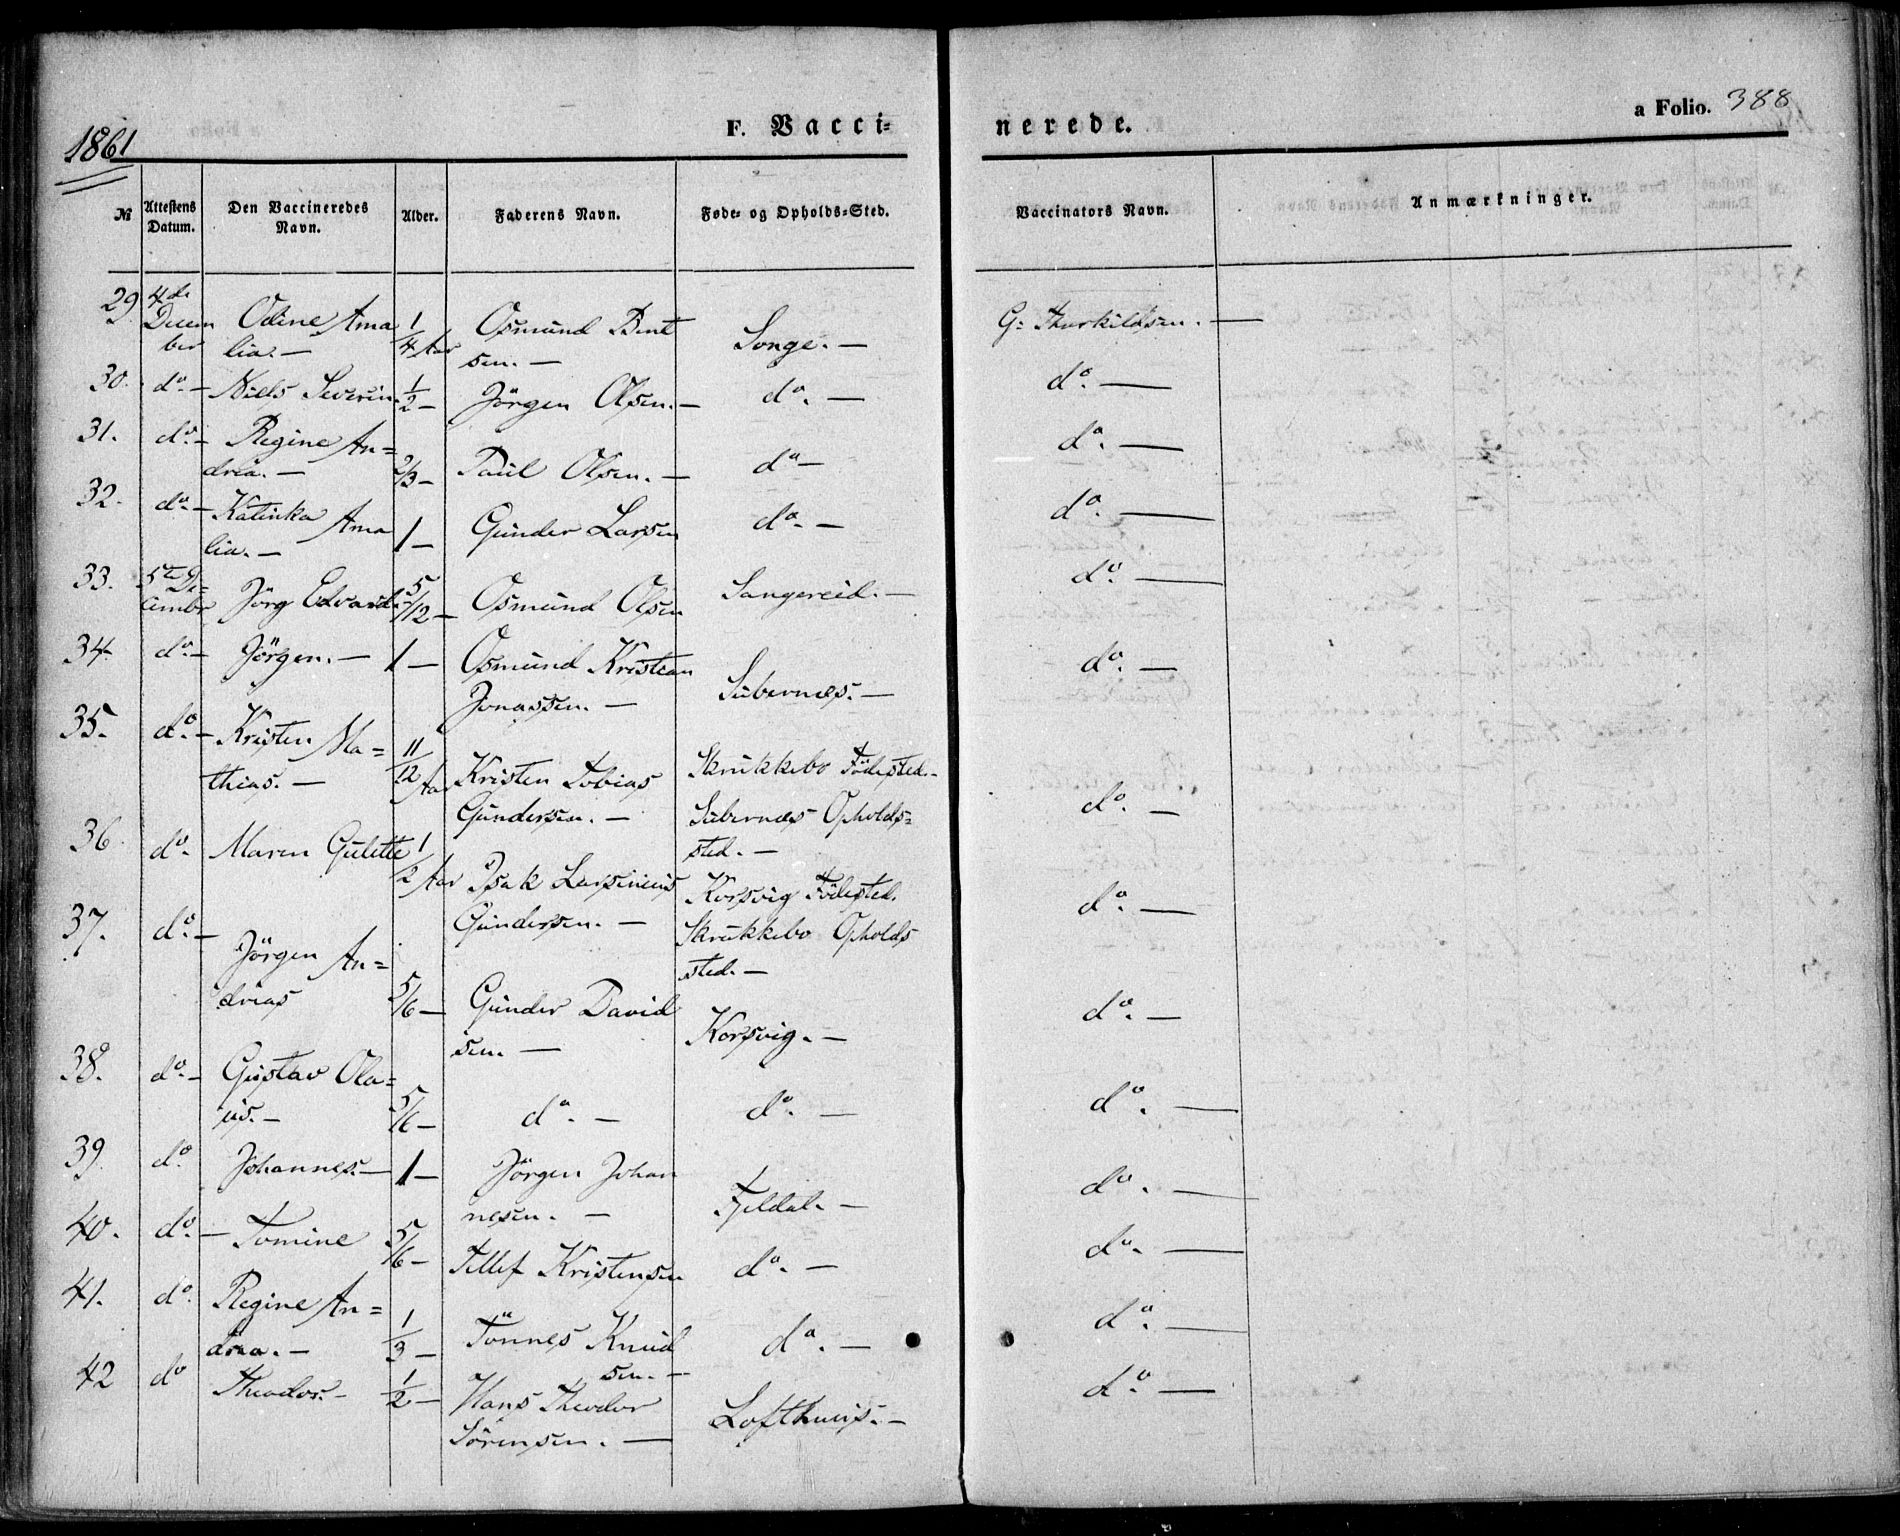 1861
F. Vacci=
nerede.
a Folio. 388
№ | Attestens Datum. | Den Vaccineredes Navn. | Alder. | Faderens Navn. | Føde- og Opholds-Sted. | Vaccinators Navn. | Anmærkninger.
29 4de Osmund Bent
Decem Odine Ama 1/4 Aar Songe. — G: Thorkildsen. —
ber lia. — sen. —
30. do. — Niels Severin. 1/2 — Jörgen Olsen. — do. — do. —
31. do. — Regine An= do. —
dria. — 2/3 — Paul Olsen. — do —
32. do. — Katinka Ama 1 — Gunder Larsen do. — do. —
lia. —
33. 5te De= do. —
cembr Jörg Edvard. 5/12 — Osmund Olsen Sangereid. —
34. do. — Jörgen. — 1 — Osmund Kristian do. —
Jonassen. — Sübernæs. —
35. do. — Kristen Ma= 11/12 Aar Kristen Tobias Skrukkebo Födested. —
thias. — Gundersen. — Sübernæs Opholds= do. —
sted. —
36 do. Maren Gulette 1/2 Aar Isak Larsinius Korsvig Födested. do. —
Gundersen. — Skrukkebo Opholds
sted. —
37. do. — Jörgen An=
drias 5/6 — Gunder David do. —
sen. — Korsvig. —
38. do. — Gustav Ola= do. —
us. — 5/6 — do. — do. —
39. do. Johannes. — 1 — Jörgen Johan do. —
nesen. — Fjeldal. —
40. do. — Tomine 5/6 — Tellef Kristensen do. — do. —
41. do. Regine An= Tönnes Knud do. —
drea. — 1/3 — sen. — do. —
42 do Theodor. — 1/2 — Hans Theodor do. —
Sörensen. — Lofthuus. —